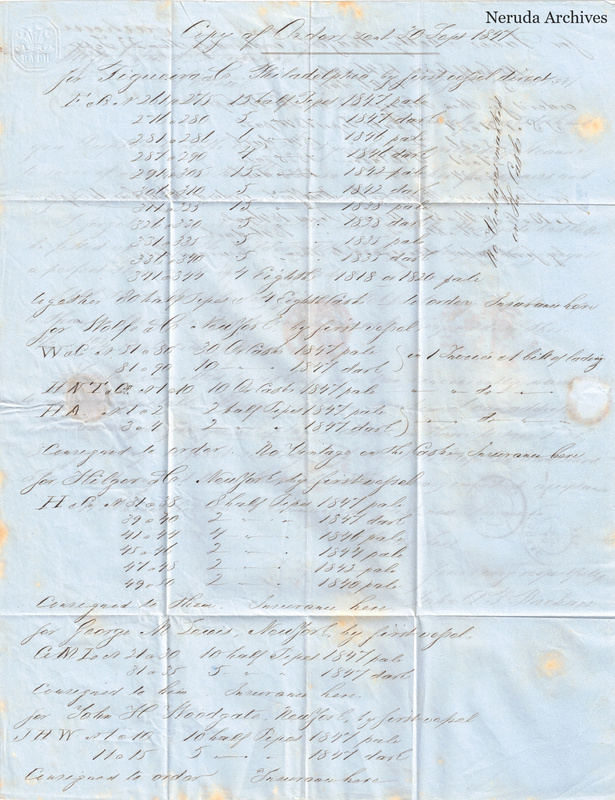 Neruda Archives
Copy of Order sent 20 Sept 1847
for Figueira & Co Philadelphia by first vessel direct
271 a 275 15 half Pipes 1847 pale
276 a 280 5 " " 1847 dark
281 a 286 " " 1846 pale
287 a 290 4 " " 1846 dark
291 a 305 15 " " 1842 pale
306 a 310 5 " " 1842 dark
15 " " 1838 pale
326 a 330 5 " " 1838 dark
331 a 335 5 " " 1835 pale
336 a 340 5 " " 1835 dark
341 a 344 4 Eighths 1818 or 1820 pale
No Vintages marked on the Casks
together 70 half Pipes & 4 Eighth Casks to order Insurance here
for Wolfe & Co New York by first vessel
W & C N 51 a 80 30 Qr Casks 1847 pale
81 a 90 10 — " 1847 dark
in 1 Invoice & bill of lading
H N T & Co N 1 a 10 10 Qr Casks 1847 pale — " do — "
H A N 1 a 2 2 half Pipes 1847 pale
3 a 4 2 — " 1847 dark
— do —
Consigned to order. No Vintage on the Casks. Insurance here
for Hilger & Co New York by first vessel
H & Co N 31 a 38 8 half Pipes 1847 pale
39 a 40 2 — " 1847 dark
41 a 44 4 — " 1846 pale
45 a 46 2 — " 1844 pale
47 a 48 2 — " 1842 pale
49 a 50 2 — " 1840 pale
Consigned to them. Insurance here
for George M. Lewis, New York, by first vessel
G M L N 21 a 30 10 half Pipes 1847 pale
31 a 35 5 — " 1847 dark
Consigned to him Insurance here.
for John H Woodgate, New York, by first vessel
J H W N 1 a 10 10 half Pipes 1847 pale
11 a 15 5 — " 1847 dark
Consigned to order Insurance here